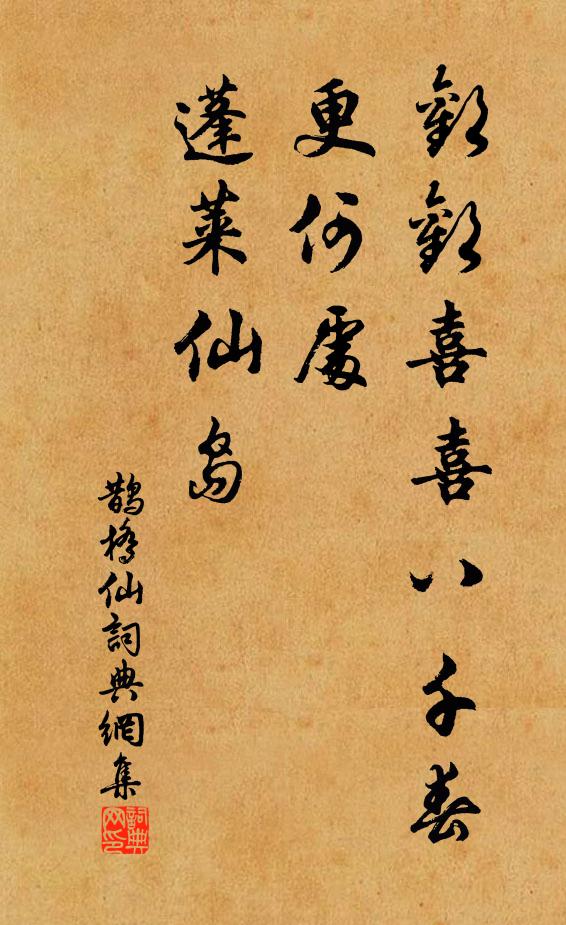 歡歡喜喜八千春
更何處
蓬萊仙島
鵲橋仙詞典網集
詞典
网印